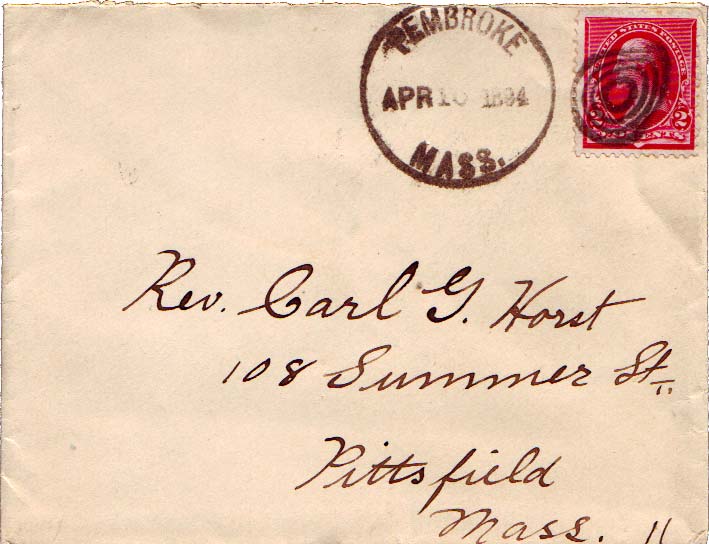 PEMBROKE
APR 10 1894
MASS.
UNITED STATES POSTAGE
2 CENTS 2
Rev. Carl G. Horst
108 Summer St.
Pittsfield
Mass.